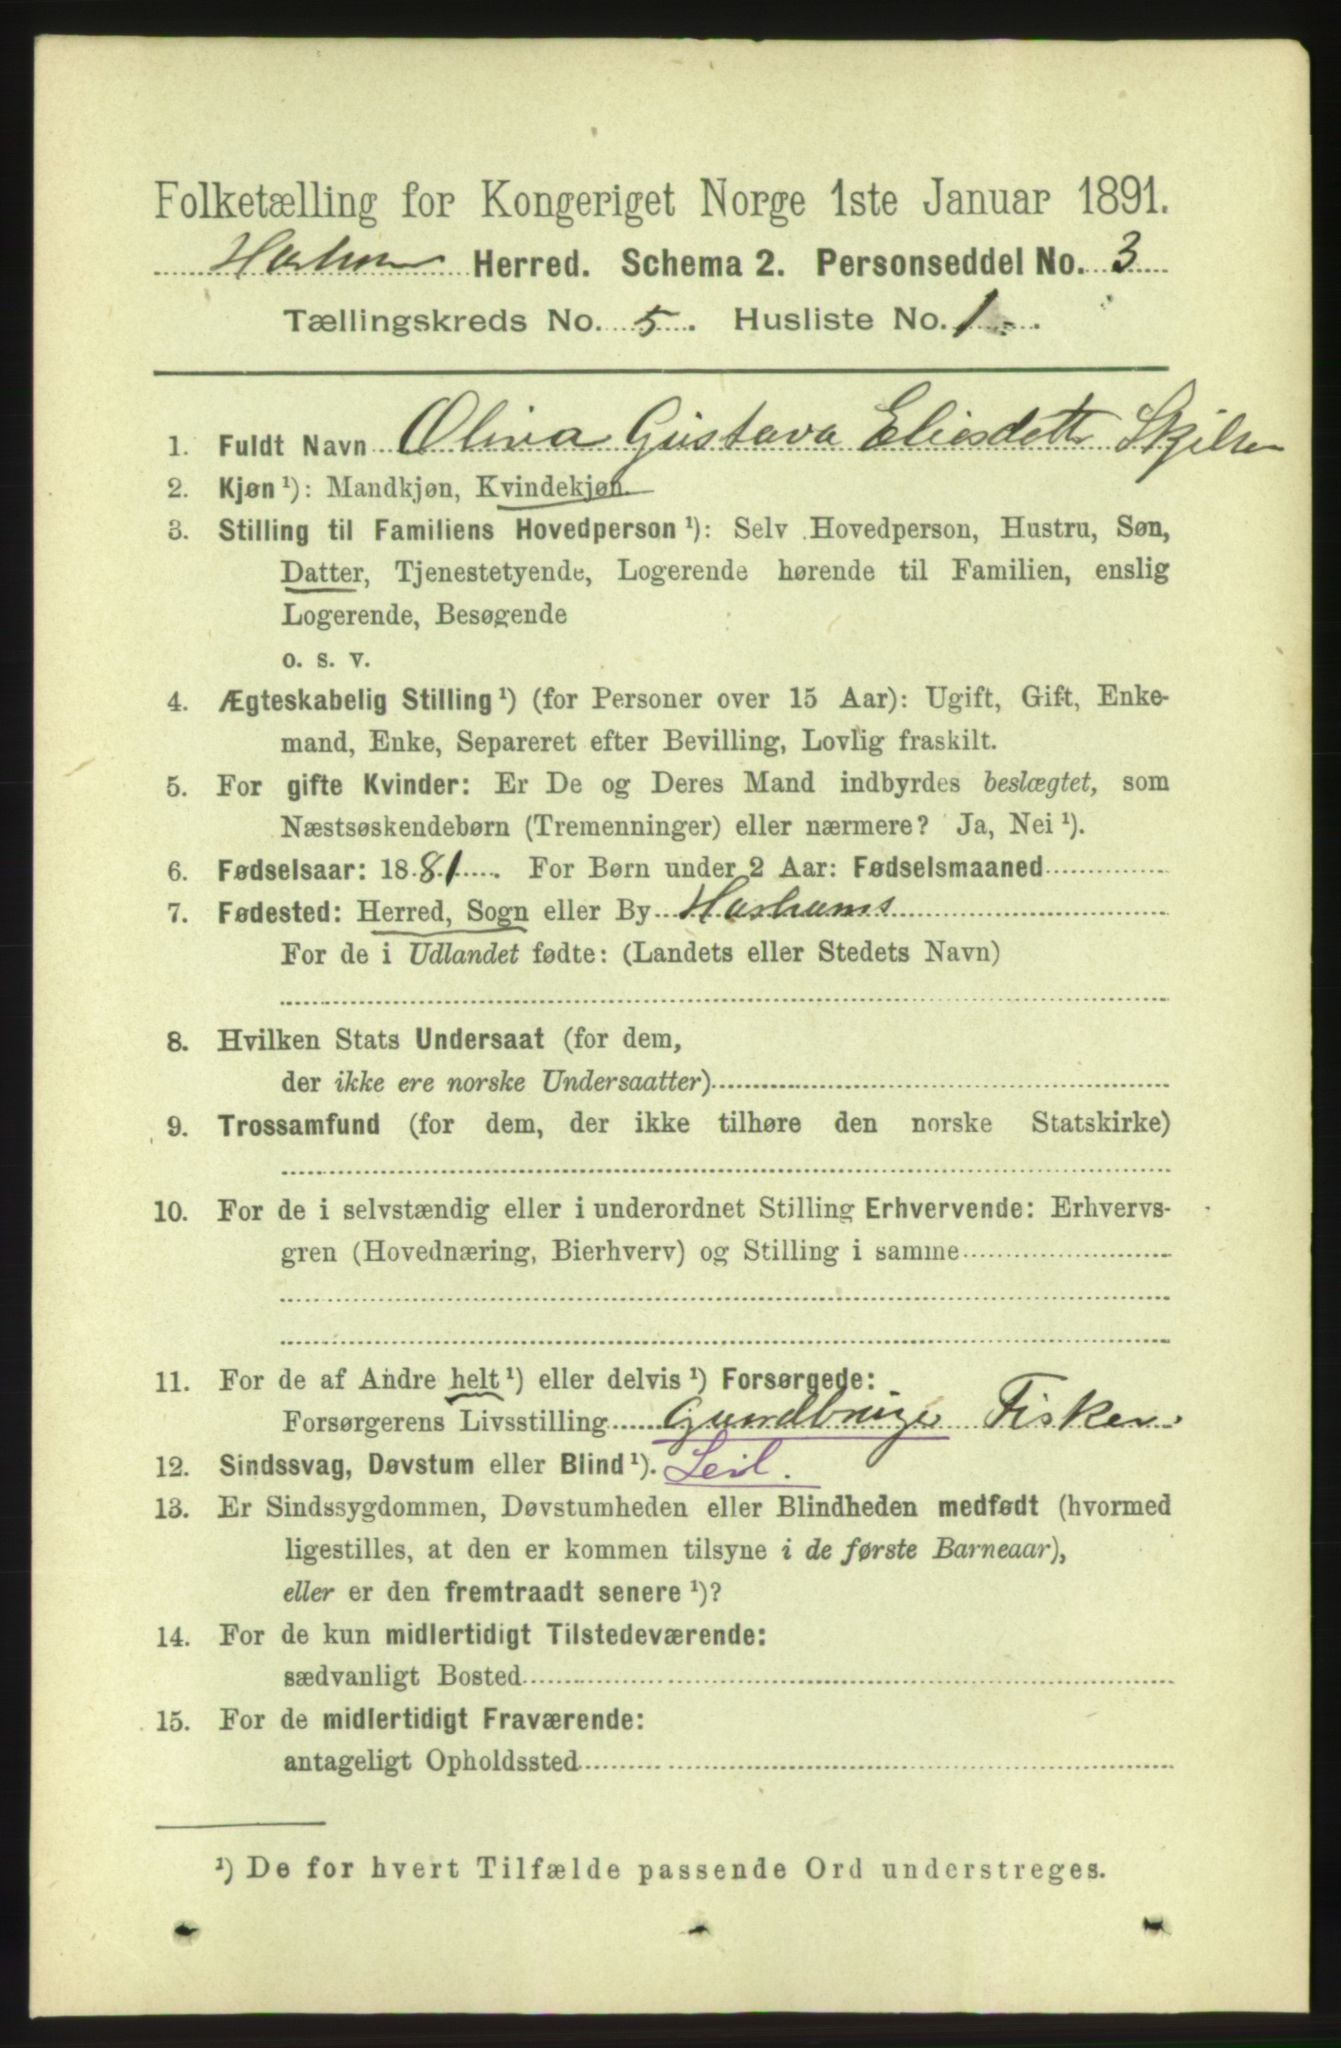 Folketælling for Kongeriget Norge 1ste Januar 1891.
Herred. Schema 2. Personseddel No. 3
Tællingskreds No. 5. Husliste No. 1
1. Fuldt Navn Oliva Gustava Eliesdett
2. Kjøn ¹): Mandkjøn, Kvindekjøn.
3. Stilling til Familiens Hovedperson ¹): Selv Hovedperson, Hustru, Søn,
Datter, Tjenestetyende, Logerende hørende til Familien, enslig
Logerende, Besøgende
o. s. v.
4. Ægteskabelig Stilling ¹) (for Personer over 15 Aar): Ugift, Gift, Enke-
mand, Enke, Separeret efter Bevilling, Lovlig fraskilt.
5. For gifte Kvinder: Er De og Deres Mand indbyrdes beslægtet, som
Næstsøskendebørn (Tremenninger) eller nærmere? Ja, Nei ¹).
6. Fødselsaar: 1881. For Børn under 2 Aar: Fødselsmaaned
7. Fødested: Herred, Sogn eller By Harhams
For de i Udlandet fødte: (Landets eller Stedets Navn)
8. Hvilken Stats Undersaat (for dem,
der ikke ere norske Undersaatter)
9. Trossamfund (for dem, der ikke tilhøre den norske Statskirke)
10. For de i selvstændig eller i underordnet Stilling Erhvervende: Erhvervs-
gren (Hovednæring, Bierhverv) og Stilling i samme
11. For de af Andre helt ¹) eller delvis ¹) Forsørgede:
Forsørgerens Livsstilling Gaardbruger Fisker
12. Sindssvag, Døvstum eller Blind ¹). Leil.
13. Er Sindssygdommen, Døvstumheden eller Blindheden medfødt (hvormed
ligestilles, at den er kommen tilsyne i de første Barneaar),
eller er den fremtraadt senere ¹)?
14. For de kun midlertidigt Tilstedeværende:
sædvanligt Bosted
15. For de midlertidigt Fraværende:
antageligt Opholdssted
¹) De for hvert Tilfælde passende Ord understreges.